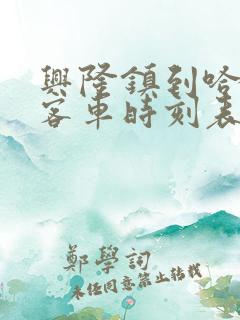 興隆鎮到哈
客車時刻表
鄭學詞
未经同意禁止转载